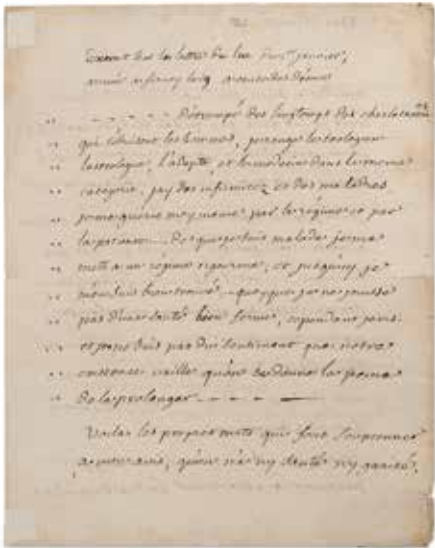 Extrait de la lettre du
" - - - - - Détrompé des longtemps des charlatans
" qui séduisent les hommes, je range le teologien
" l'astrologue, l'adepte, et le medecin dans la meme
" categorie, j'ay des infirmitez et des maladies
" je me gueris moy meme par le régime et par
" la patience. Des que je suis malade je me
" mets a un régime rigoureux, et jusqu'icy je
" m'en suis bien trouvé. quoyque je ne jouisse
" pas d'une santé bien ferme, cependant je vis
" et je ne suis pas du sentiment que notre
" existence vaille qu'on se donne la peine
" de la prolonger - - - -
Voila les propres mots qui font soupconner
a mon avis, qu'on n'a ny santé ny gaieté,